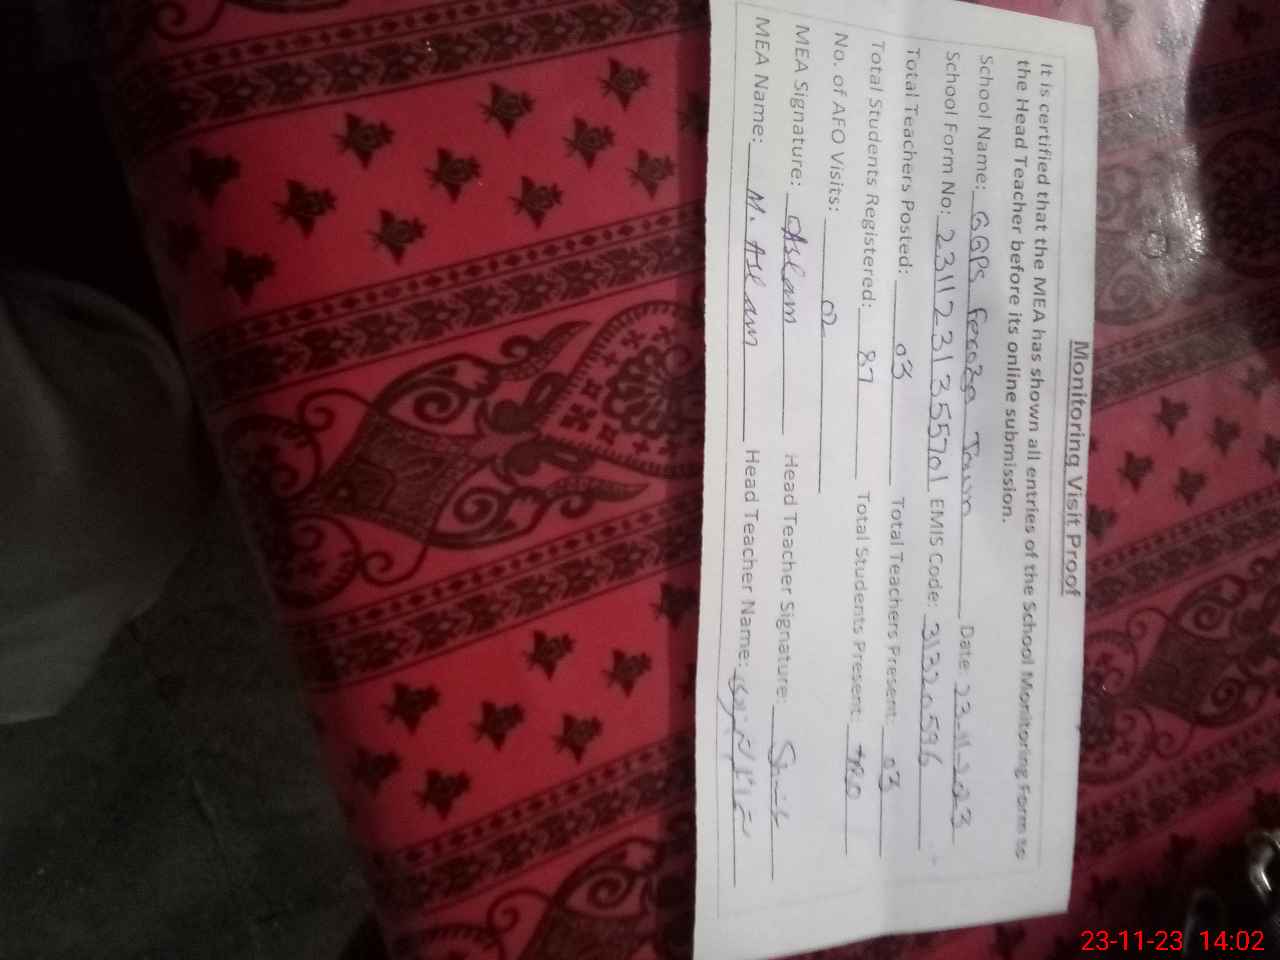 Monitoring Visit Proof
It is certified that the MEA has shown all entries of the School Monitoring Form to
the Head Teacher before its online submission.
School Name: GGPS Feroza Town Date: 23-11-2023
School Form No: 2311231355701 EMIS Code: 31320596
Total Teachers Posted: 03 Total Teachers Present: 03
Total Students Registered: 87 Total Students Present:
No. of AFO Visits: 02
MEA Signature: Aslam Head Teacher Signature:
MEA Name: M. Aslam Head Teacher Name:
23-11-23 14:02